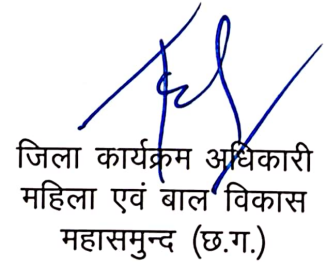 जिला कार्यक्रम अधिकारी
महिला एवं बाल विकास
महासमुन्द (छ.ग.)